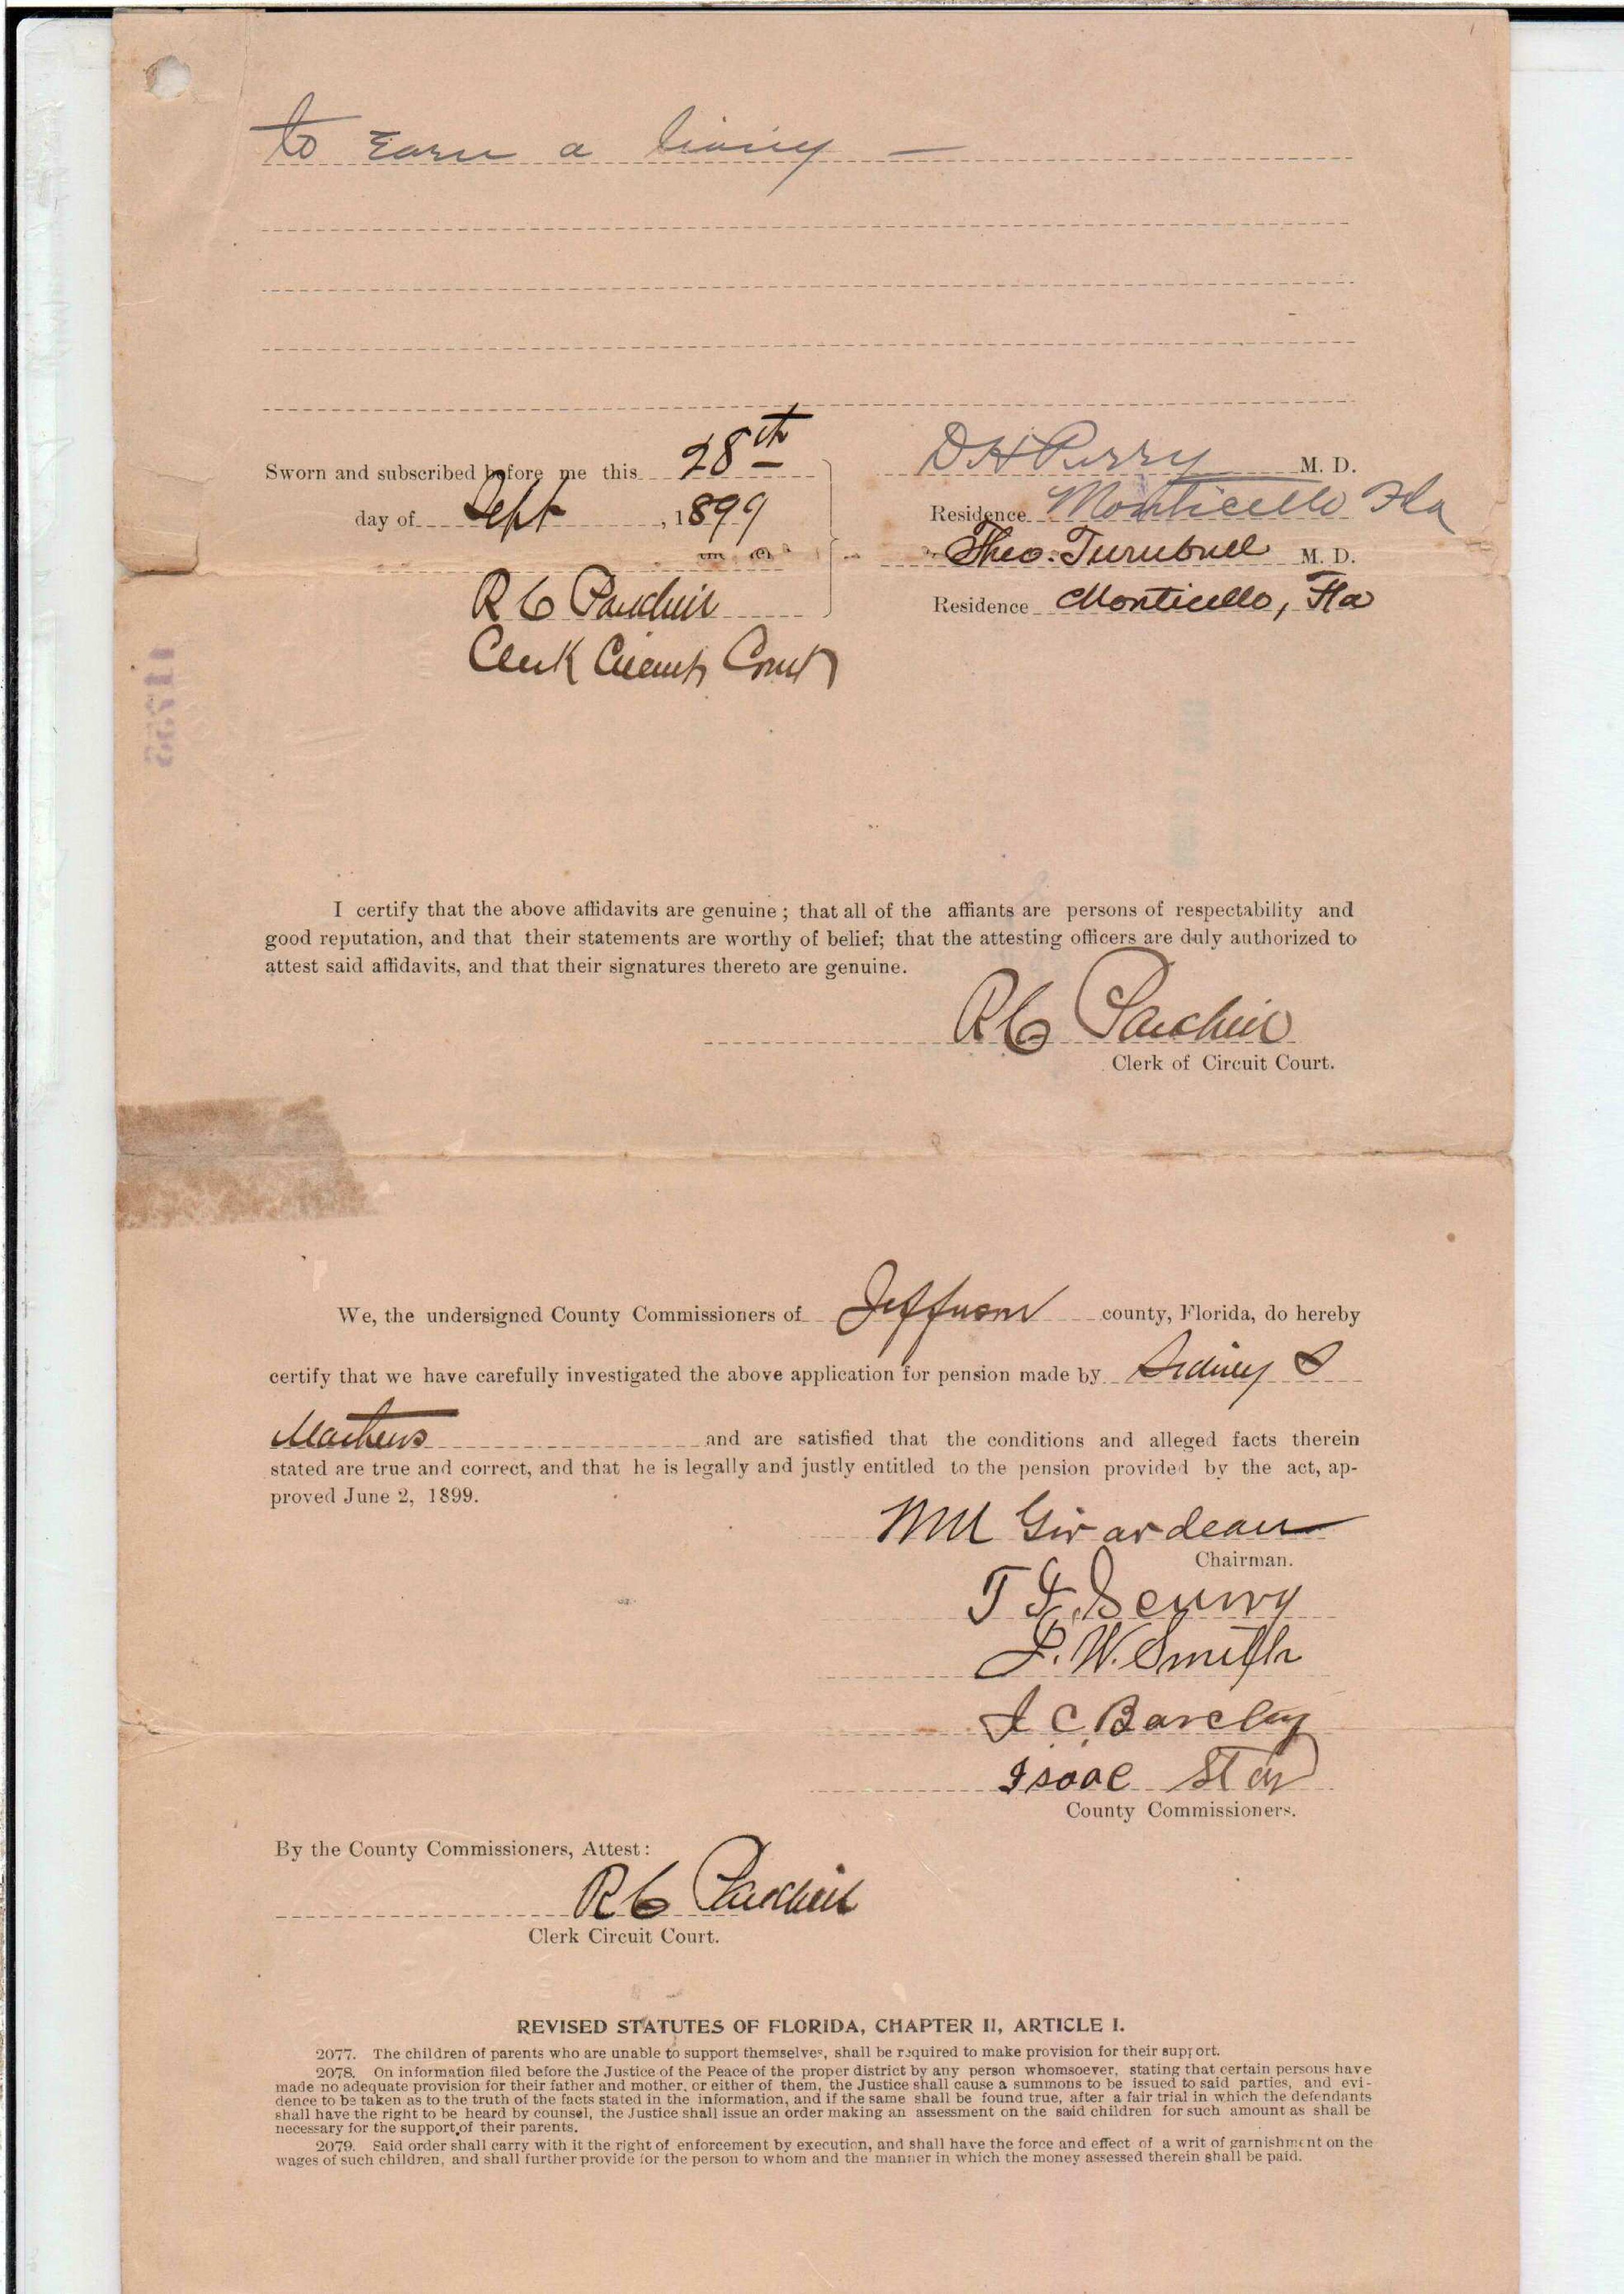 to earn a living —
Sworn and subscribed before me this 28th
day of Sept, 1899
R C Parkhill
Clerk Circuit Court
D H Perry M. D.
Residence Monticello Fla
Theo. Turnbull M. D.
Residence Monticello, Fla
I certify that the above affidavits are genuine; that all of the affiants are persons of respectability and
good reputation, and that their statements are worthy of belief; that the attesting officers are duly authorized to
attest said affidavits, and that their signatures thereto are genuine.
R C Parkhill
Clerk of Circuit Court.
We, the undersigned County Commissioners of Jefferson county, Florida, do hereby
certify that we have carefully investigated the above application for pension made by Sidney S
Mathews and are satisfied that the conditions and alleged facts therein
stated are true and correct, and that he is legally and justly entitled to the pension provided by the act, ap-
proved June 2, 1899.
Girardeau
Chairman.
T
W. Smith
C Barclay
Isaac
County Commissioners.
By the County Commissioners, Attest:
R C Parkhill
Clerk Circuit Court.
REVISED STATUTES OF FLORIDA, CHAPTER II, ARTICLE I.
2077. The children of parents who are unable to support themselves, shall be required to make provision for their support.
2078. On information filed before the Justice of the Peace of the proper district by any person whomsoever, stating that certain persons have
made no adequate provision for their father and mother, or either of them, the Justice shall cause a summons to be issued to said parties, and evi-
dence to be taken as to the truth of the facts stated in the information, and if the same shall be found true, after a fair trial in which the defendants
shall have the right to be heard by counsel, the Justice shall issue an order making an assessment on the said children for such amount as shall be
necessary for the support of their parents.
2079. Said order shall carry with it the right of enforcement by execution, and shall have the force and effect of a writ of garnishment on the
wages of such children, and shall further provide for the person to whom and the manner in which the money assessed therein shall be paid.